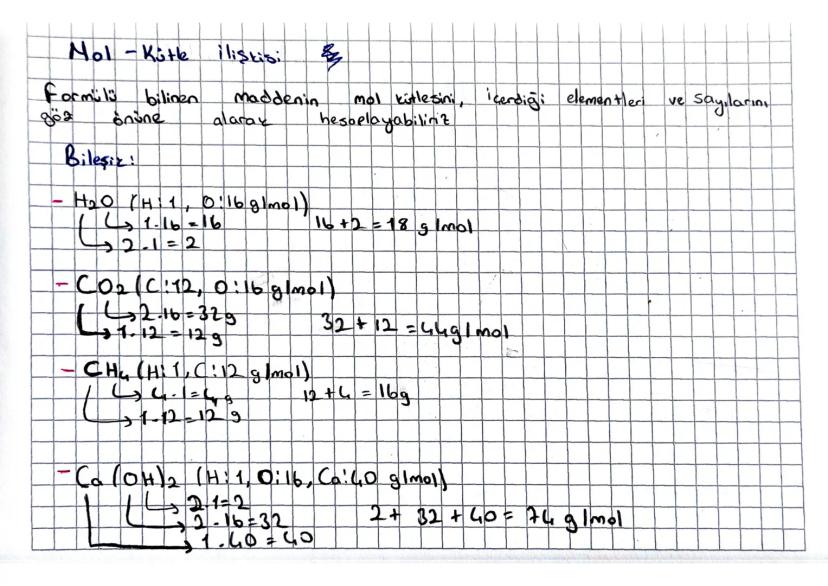 Mol - Kütle ilişkisi
Formülü bilinen maddenin mol kütlesini, içerdiği elementleri ve sayılarını
göz önüne alarak hesaplayabiliriz
Bileşik:
- H2O (H:1, O:16 g/mol)
1.16=16 16+2=18 g/mol
2.1=2
- CO2 (C:12, O:16 g/mol)
2.16=32g
1.12=12g 32+12=44g/mol
- CH4 (H:1, C:12 g/mol)
4.1=4g 12+4=16g
1.12=12g
- Ca(OH)2 (H:1, O:16, Ca:40 g/mol)
2.1=2
2.16=32 2+32+40=74 g/mol
1.40=40